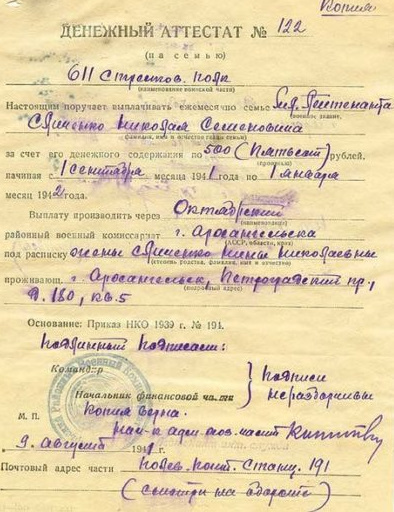 Копия
ДЕНЕЖНЫЙ АТТЕСТАТ № 122
(на семью)
611 Стрелков. полк
(наименование воинской части)
Настоящим поручает выплачивать ежемесячно семье Мл. Лейтенанта
(военное звание,
Николая Семеновича
фамилия, имя и отчество главы семьи)
за счет его денежного содержания по 500 (Пятьсот) рублей.
(прописью)
начиная с 1 сентября месяца 1941 года по 1 января
месяц 1942 года.
Выплату производить через Октябрьский
(наименование)
районный военный комиссариат г. Архангельска
(АССР, область, край)
под расписку жены Нины Николаевны
(степень родства, фамилия, имя и отчество)
проживающ. г. Архангельск, Петроградский пр.,
(подробный адрес)
д. 180, кв. 5
Основание: Приказ НКО 1939 г. № 191.
Подлинный подписали:
Командир
Подписи
Начальник финансовой части
неразборчивы
М. П.
Копия верна.
9. августа 1941 г.
Почтовый адрес части 191
(смотри на обороте)